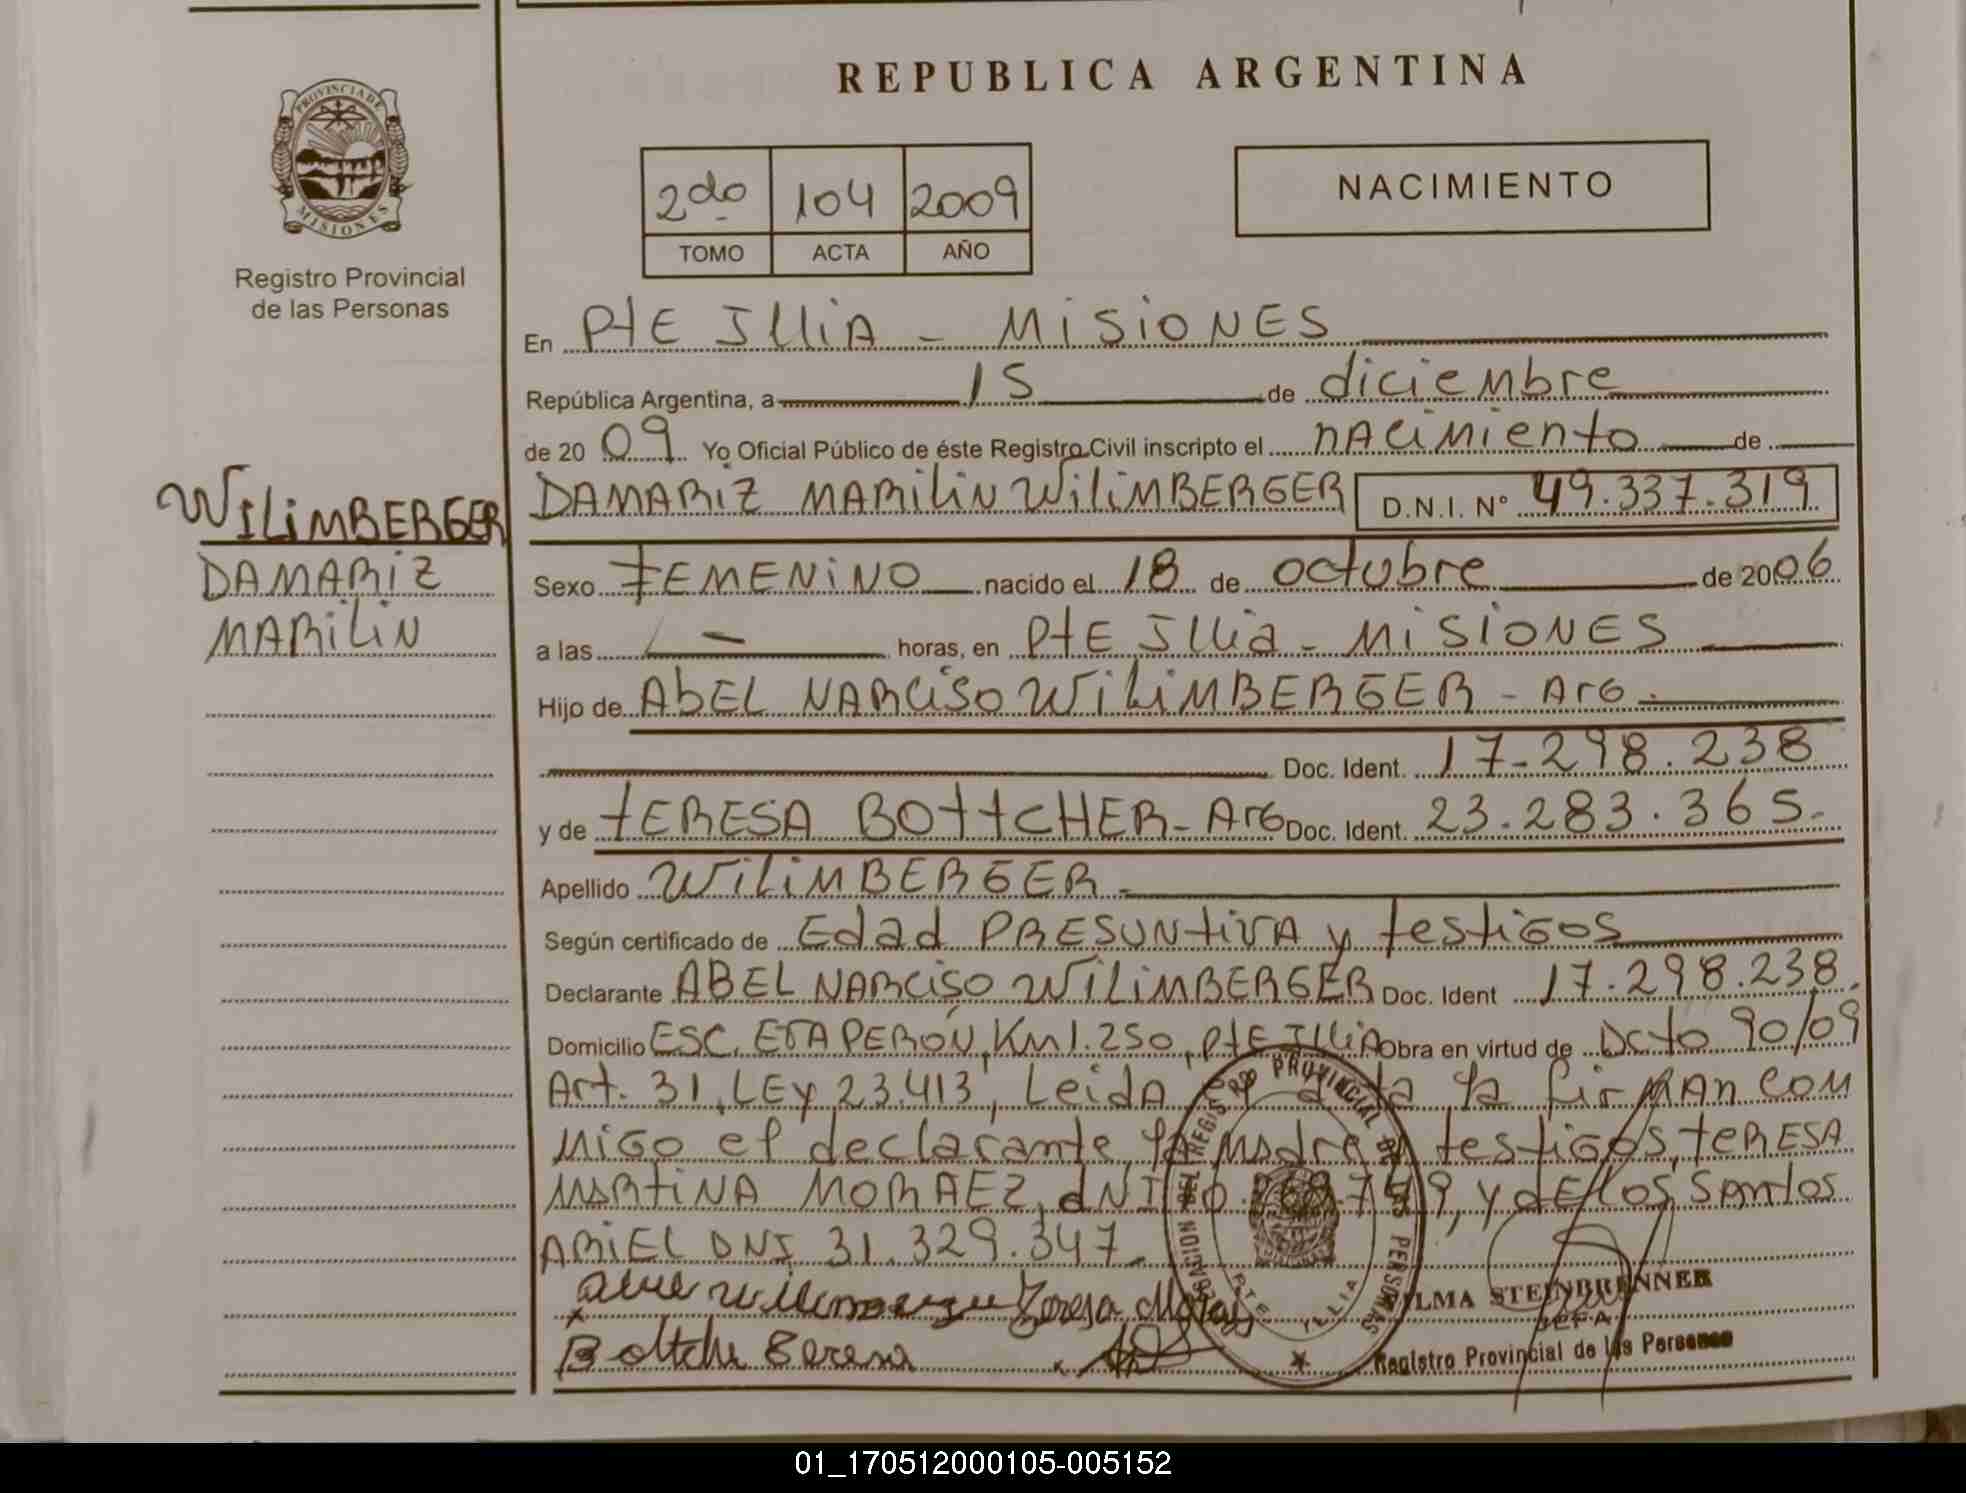 REPUBLICA ARGENTINA
PROVINCIA DE
MISIONES
Registro Provincial
de las Personas
2do 104 2009
TOMO ACTA AÑO
NACIMIENTO
En PtE IlliA - MISIONES
República Argentina, a 15 de diciembre
de 20 09 Yo Oficial Público de éste Registro Civil inscripto el nacimiento de
DAMARIZ MARILIN WILIMBERGER D.N.I. N° 49.337.319
WILIMBERGER
DAMARIZ
MARILIN
Sexo FEMENINO nacido el 18 de octubre de 2006
a las - horas, en PtE Illia - MISIONES
Hijo de AbEL NARCISO WILIMBERGER - Arg -
Doc. Ident. 17-298.238
y de TERESA BOTTCHER - Arg Doc. Ident. 23.283.365.-
Apellido WILIMBERGER -
Según certificado de Edad PRESUNTIVA y testigos
Declarante ABEL NARCISO WILIMBERGER Doc. Ident 17.298.238.
Domicilio ESC. EVA PERÓN, Km 1.250, PtE IlliA Obra en virtud de Dcto 90/09
Art. 31, LEY 23.413, Leida la firman con
migo el declarante, la madre testigos, TERESA
MARTINA MORAEZ, dNI y dE los Santos
ARIEL DNI 31.329.347.-
Teresa
REGISTRO PROVINCIAL DE LAS PERSONAS
WILMA STEINBRENNER
JEFA
Registro Provincial de las Personas
01_170512000105-005152